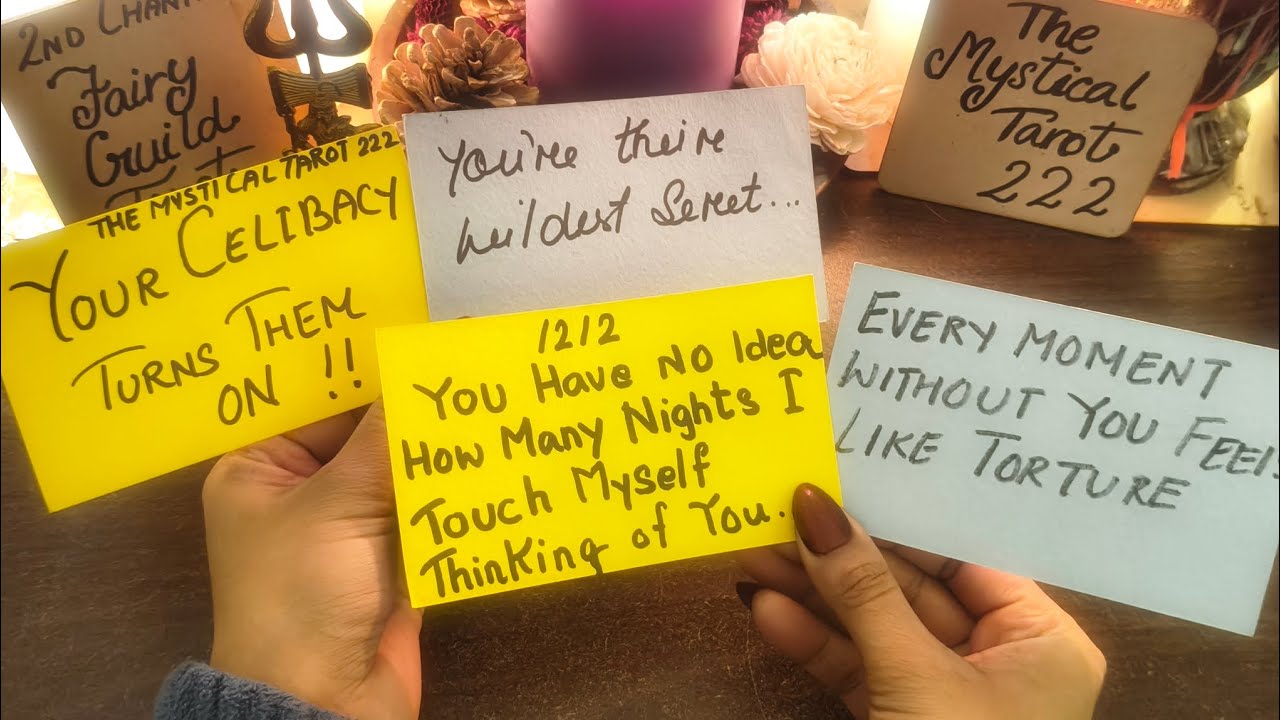 2ND CHANN
Fairy
Guild
THE MYSTICAL TAROT 222
YOUR CELIBACY
TURNS THEM
ON !!
You're their
wildest Secret...
1212
YOU HAVE NO IdeA
How Many Nights I
Touch Myself
Thinking of You.
The
Mystical
Tarot
222
EVERY MOMENT
WITHOUT YOU FEEL
LIKE TORTURE